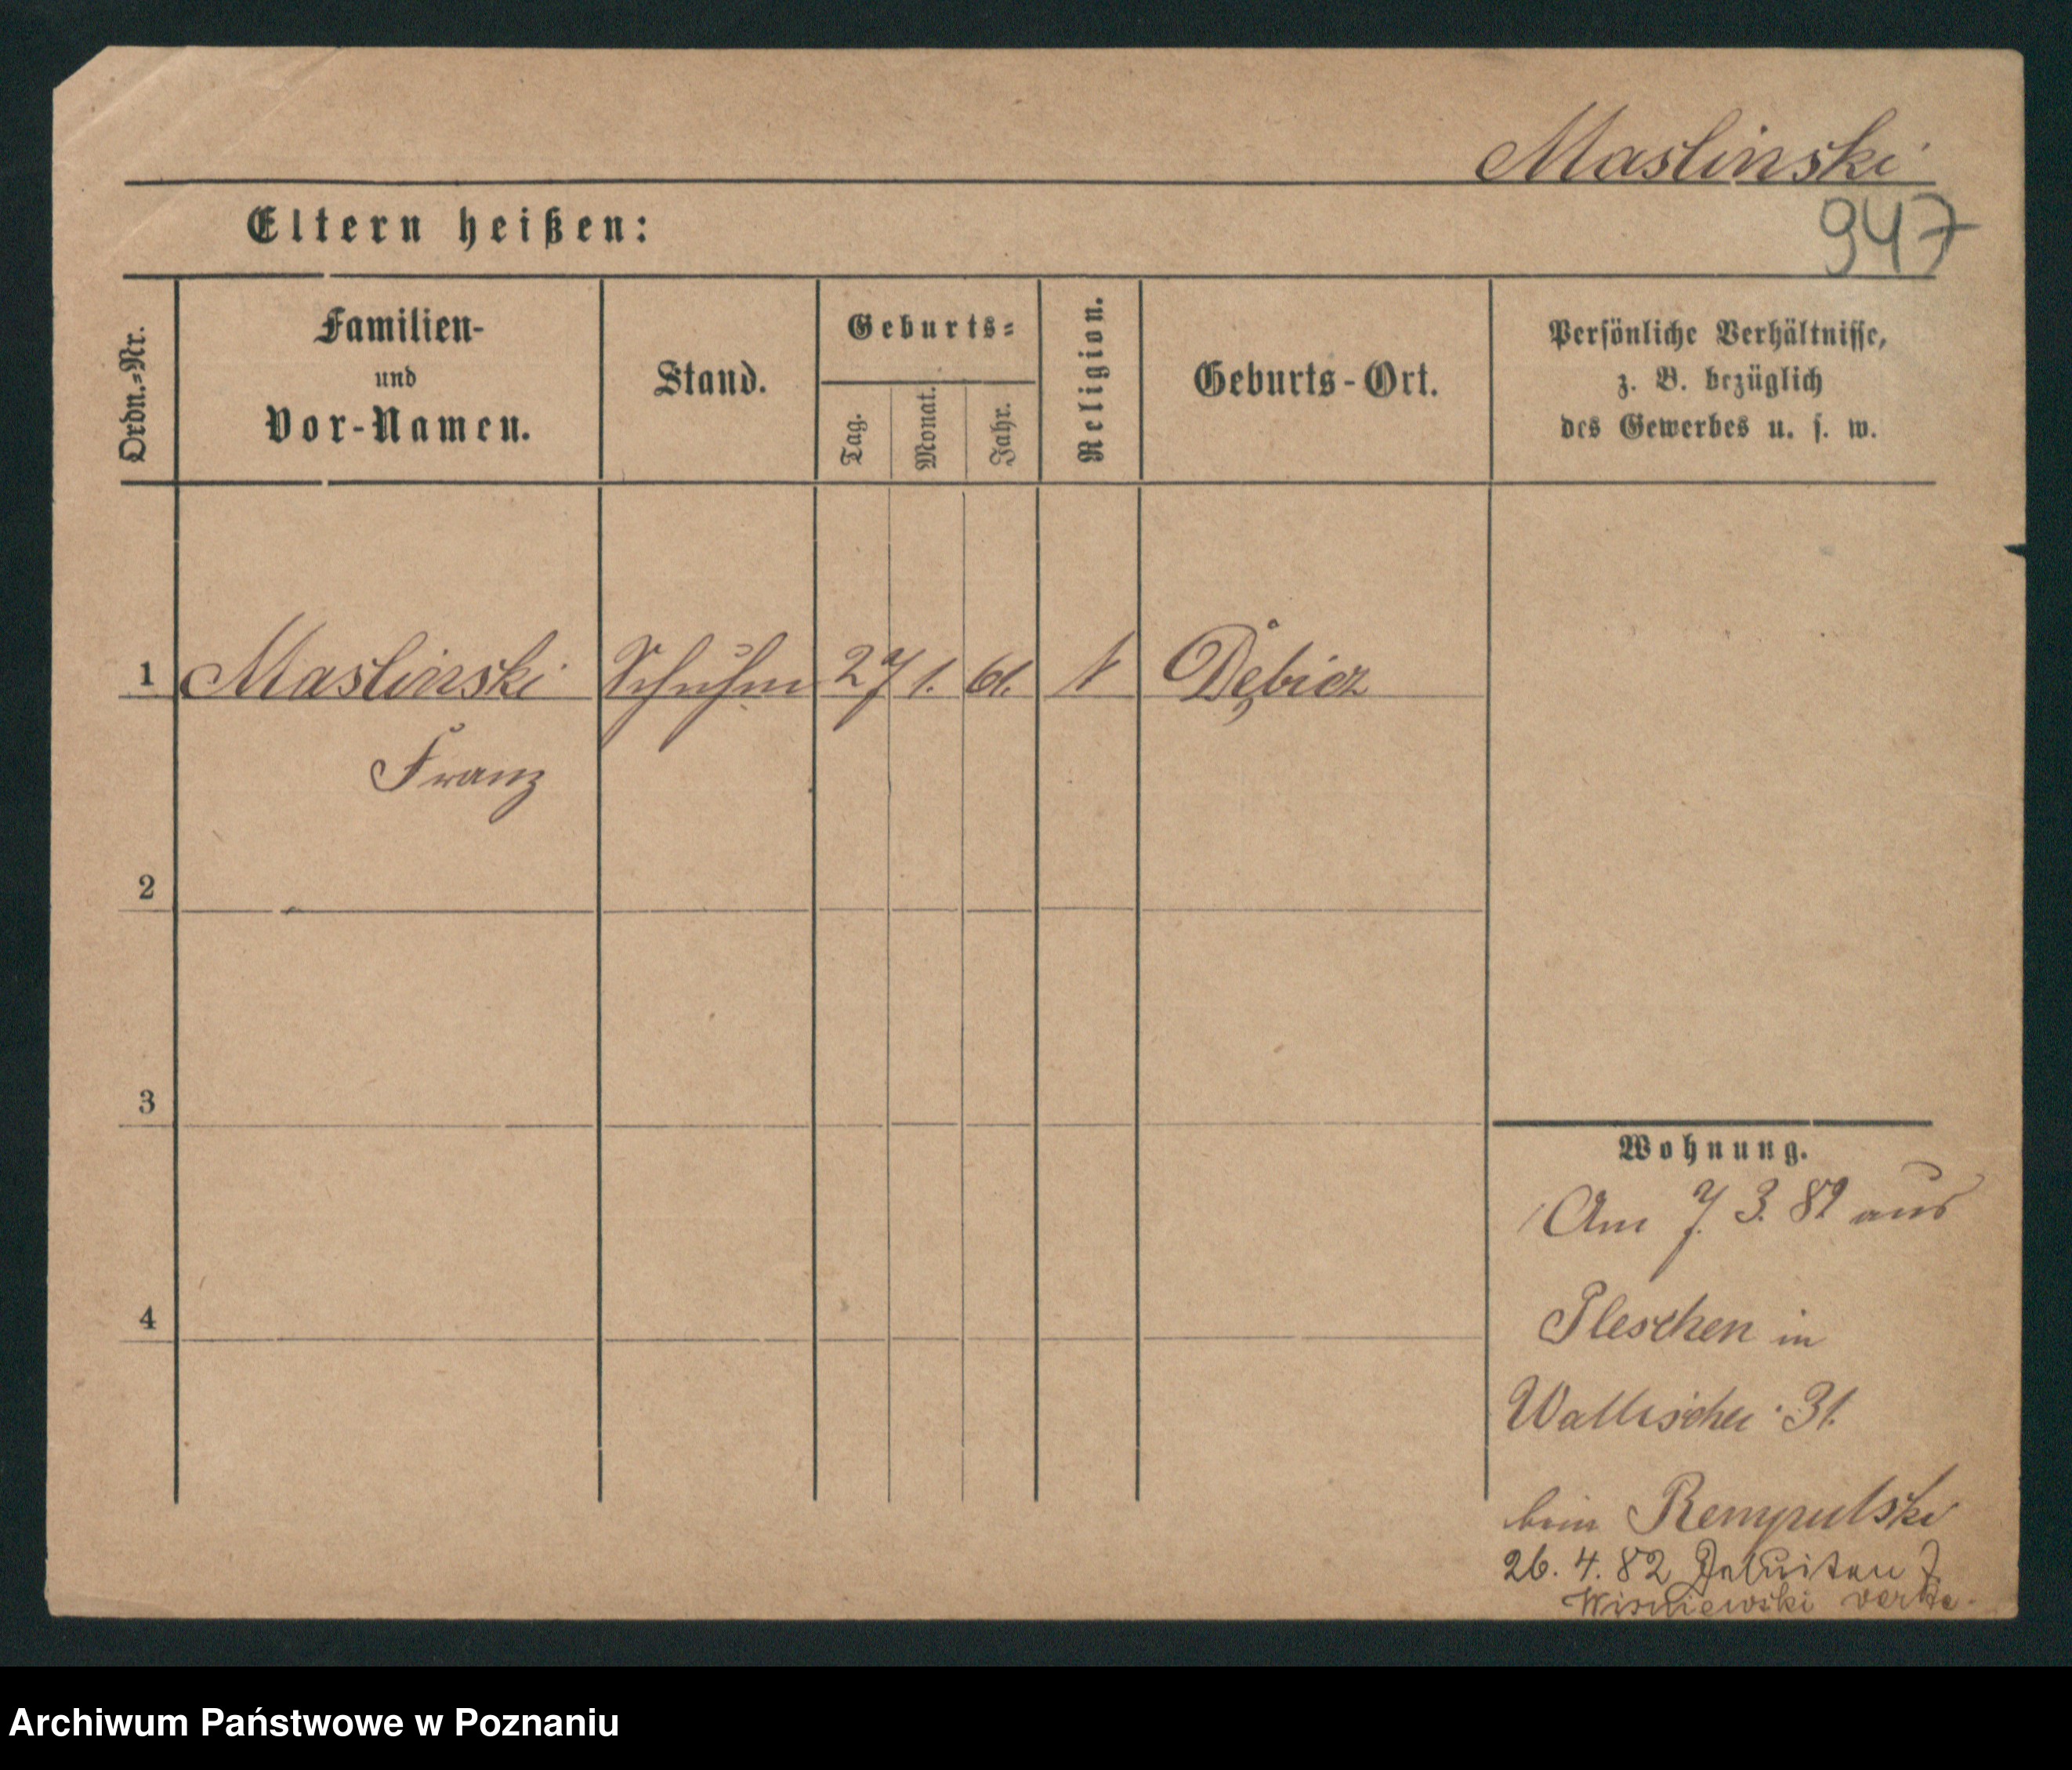 Maslinski
947
Eltern heißen:
Ordn.=Nr.
Familien-
und
Vor-Namen.
Stand.
Geburts=
Tag.
Monat.
Jahr.
Religion.
Geburts-Ort.
Persönliche Verhältnisse,
z. B. bezüglich
des Gewerbes u. s. w.
1 Maslinski Schuhm 27 1. 61. Dębicz
Franz
2
3
4
Wohnung.
Am 7. 3. 82 aus
Pleschen in
Wallischei 31.
beim Rempulski
26. 4. 82 Jesuiten 7
Wisniewski
Archiwum Państwowe w Poznaniu